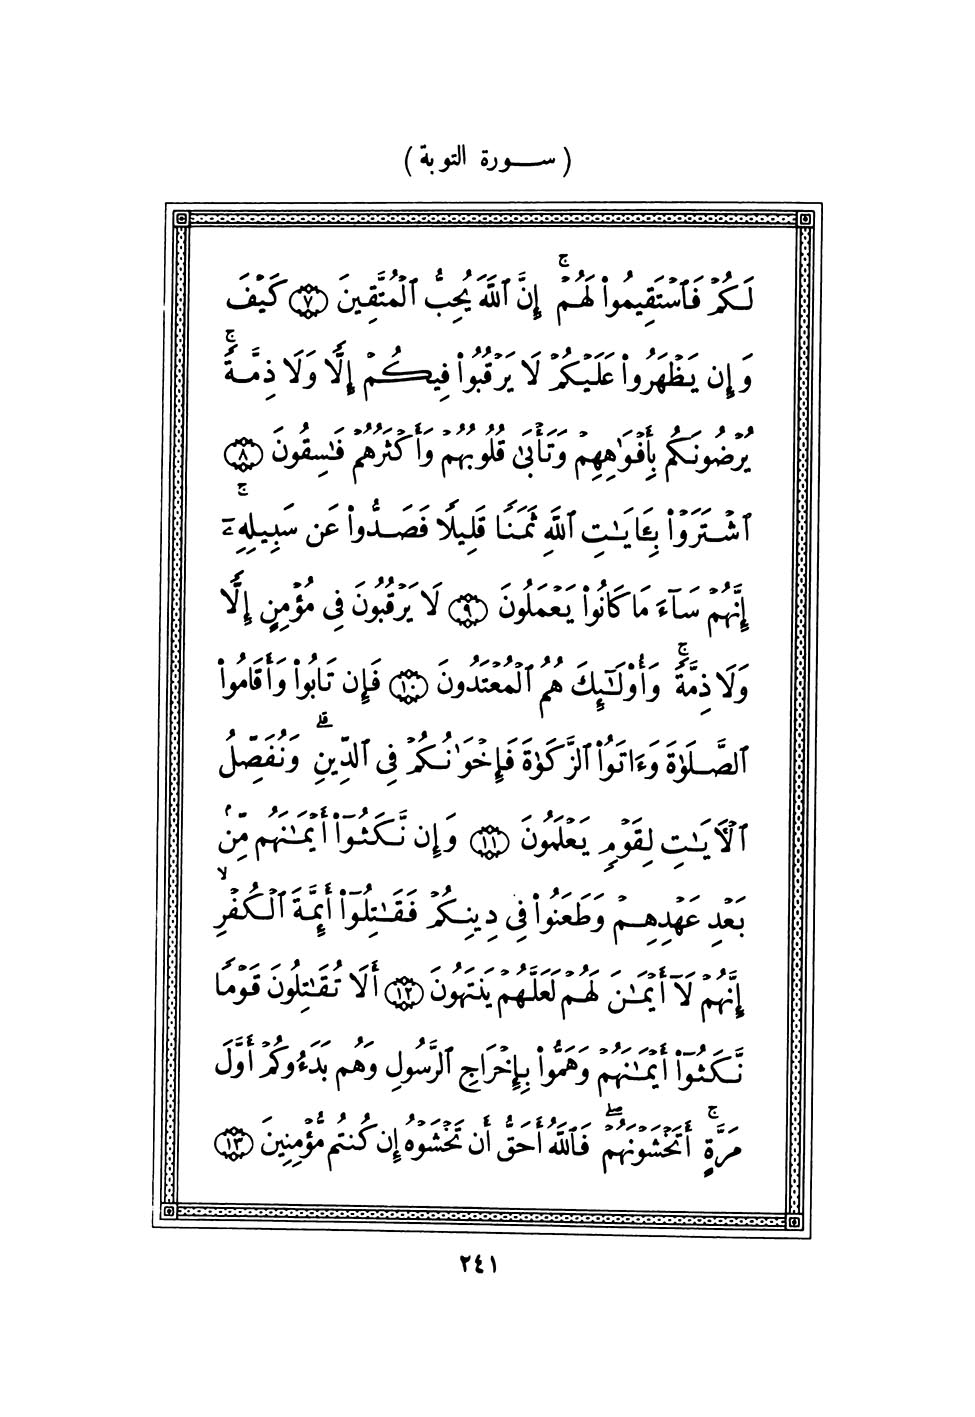 ( ســورة التوبة )
لَكُمْ فَٱسْتَقِيمُوا۟ لَهُمْ ۚ إِنَّ ٱللَّهَ يُحِبُّ ٱلْمُتَّقِينَ ۝٧ كَيْفَ
وَإِن يَظْهَرُوا۟ عَلَيْكُمْ لَا يَرْقُبُوا۟ فِيكُمْ إِلًّا وَلَا ذِمَّةً ۚ
يُرْضُونَكُم بِأَفْوَٰهِهِمْ وَتَأْبَىٰ قُلُوبُهُمْ وَأَكْثَرُهُمْ فَـٰسِقُونَ ۝٨
ٱشْتَرَوْا۟ بِـَٔايَـٰتِ ٱللَّهِ ثَمَنًا قَلِيلًا فَصَدُّوا۟ عَن سَبِيلِهِۦٓ ۚ
إِنَّهُمْ سَآءَ مَا كَانُوا۟ يَعْمَلُونَ ۝٩ لَا يَرْقُبُونَ فِى مُؤْمِنٍ إِلًّا
وَلَا ذِمَّةً ۚ وَأُو۟لَـٰٓئِكَ هُمُ ٱلْمُعْتَدُونَ ۝١٠ فَإِن تَابُوا۟ وَأَقَامُوا۟
ٱلصَّلَوٰةَ وَءَاتَوُا۟ ٱلزَّكَوٰةَ فَإِخْوَٰنُكُمْ فِى ٱلدِّينِ ۗ وَنُفَصِّلُ
ٱلْـَٔايَـٰتِ لِقَوْمٍ يَعْلَمُونَ ۝١١ وَإِن نَّكَثُوٓا۟ أَيْمَـٰنَهُم مِّنۢ
بَعْدِ عَهْدِهِمْ وَطَعَنُوا۟ فِى دِينِكُمْ فَقَـٰتِلُوٓا۟ أَئِمَّةَ ٱلْكُفْرِ ۙ
إِنَّهُمْ لَآ أَيْمَـٰنَ لَهُمْ لَعَلَّهُمْ يَنتَهُونَ ۝١٢ أَلَا تُقَـٰتِلُونَ قَوْمًا
نَّكَثُوٓا۟ أَيْمَـٰنَهُمْ وَهَمُّوا۟ بِإِخْرَاجِ ٱلرَّسُولِ وَهُم بَدَءُوكُمْ أَوَّلَ
مَرَّةٍ ۚ أَتَخْشَوْنَهُمْ ۖ فَٱللَّهُ أَحَقُّ أَن تَخْشَوْهُ إِن كُنتُم مُّؤْمِنِينَ ۝١٣
٢٤١